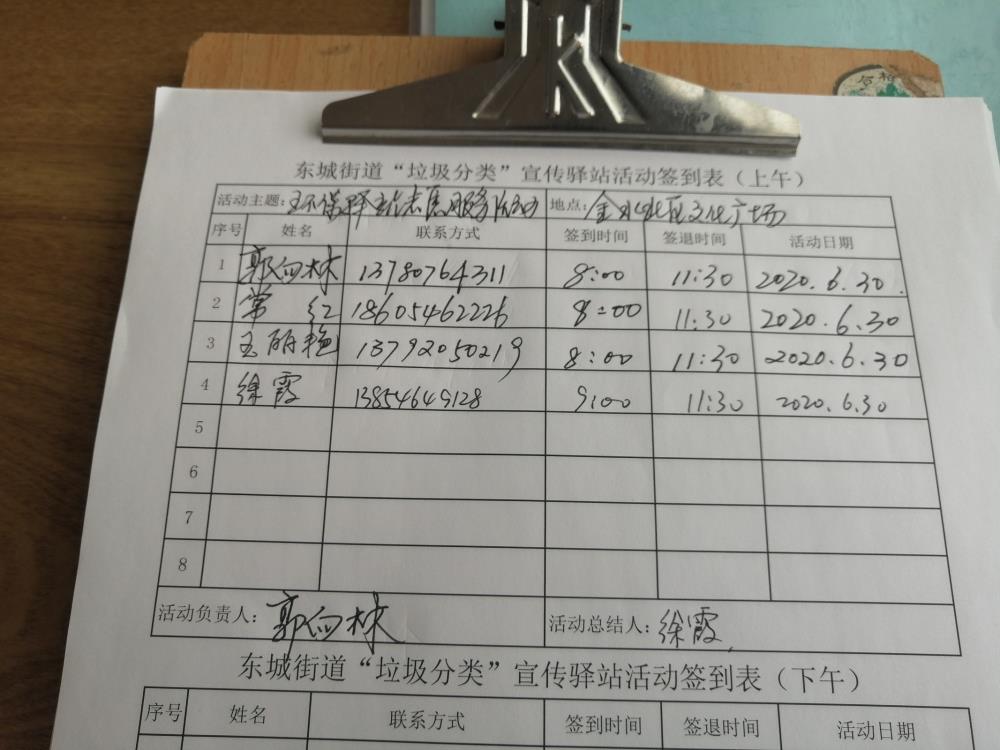 合格
东城街道“垃圾分类”宣传驿站活动签到表（上午）
活动主题：环保驿站志愿服务活动 地点：金水社区文化广场
序号 姓名 联系方式 签到时间 签退时间 活动日期
1 郭向林 13780764311 8:00 11:30 2020.6.30.
2 常红 18605462226 8:00 11:30 2020.6.30
3 王丽艳 13792050219 8:00 11:30 2020.6.30
4 徐霞 13854649128 9:00 11:30 2020.6.30
5
6
7
8
活动负责人：郭向林 活动总结人：徐霞
东城街道“垃圾分类”宣传驿站活动签到表（下午）
序号 姓名 联系方式 签到时间 签退时间 活动日期